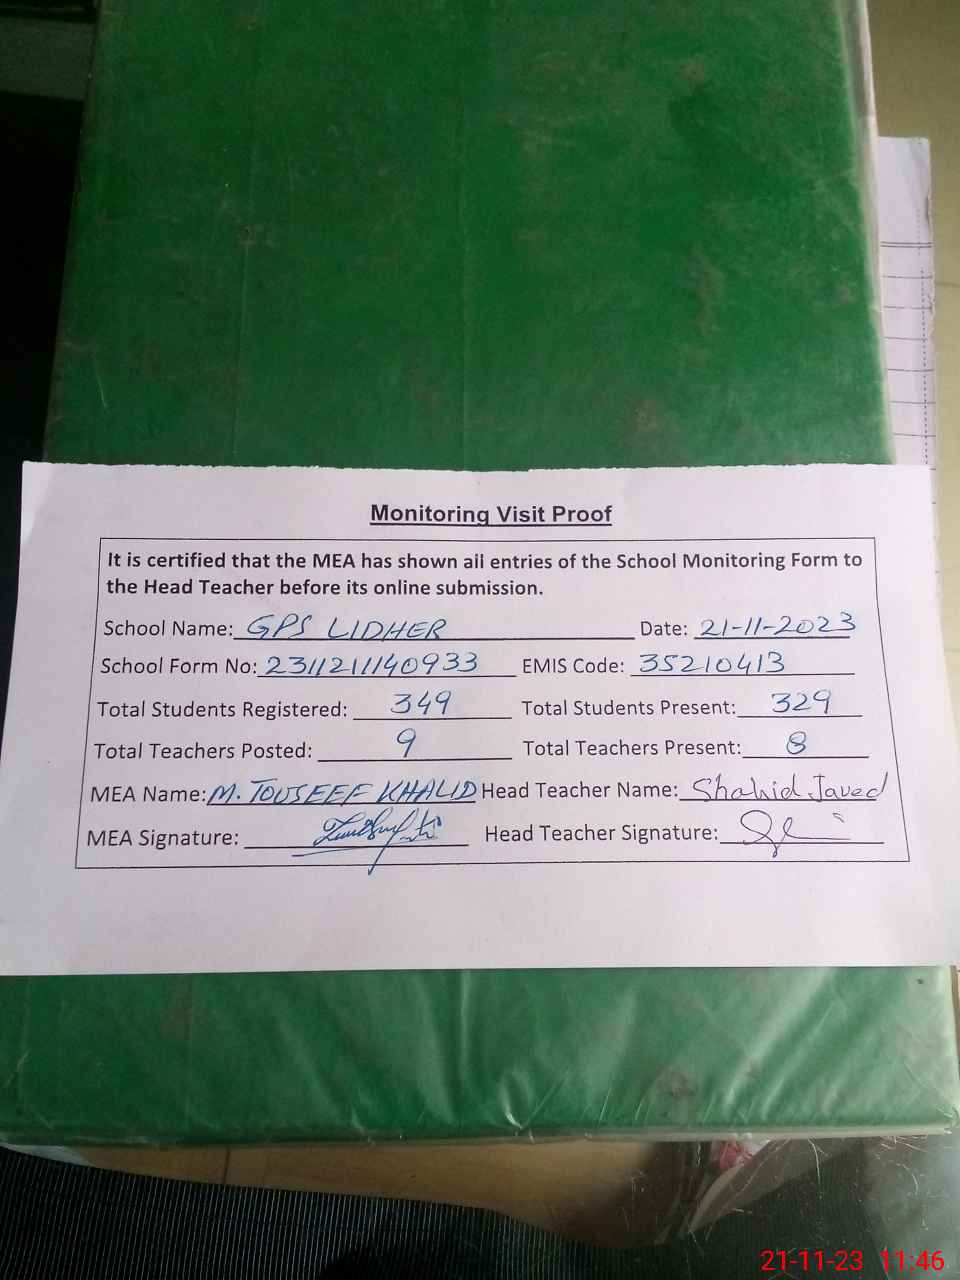 Monitoring Visit Proof
It is certified that the MEA has shown all entries of the School Monitoring Form to
the Head Teacher before its online submission.
School Name: GPS LIDHER Date: 21-11-2023
School Form No: 2311211140933 EMIS Code: 35210413
Total Students Registered: 349 Total Students Present: 329
Total Teachers Posted: 9 Total Teachers Present: 8
MEA Name: M. TOUSEEF KHALID Head Teacher Name: Shahid Javed
MEA Signature: Head Teacher Signature:
21-11-23 11:46